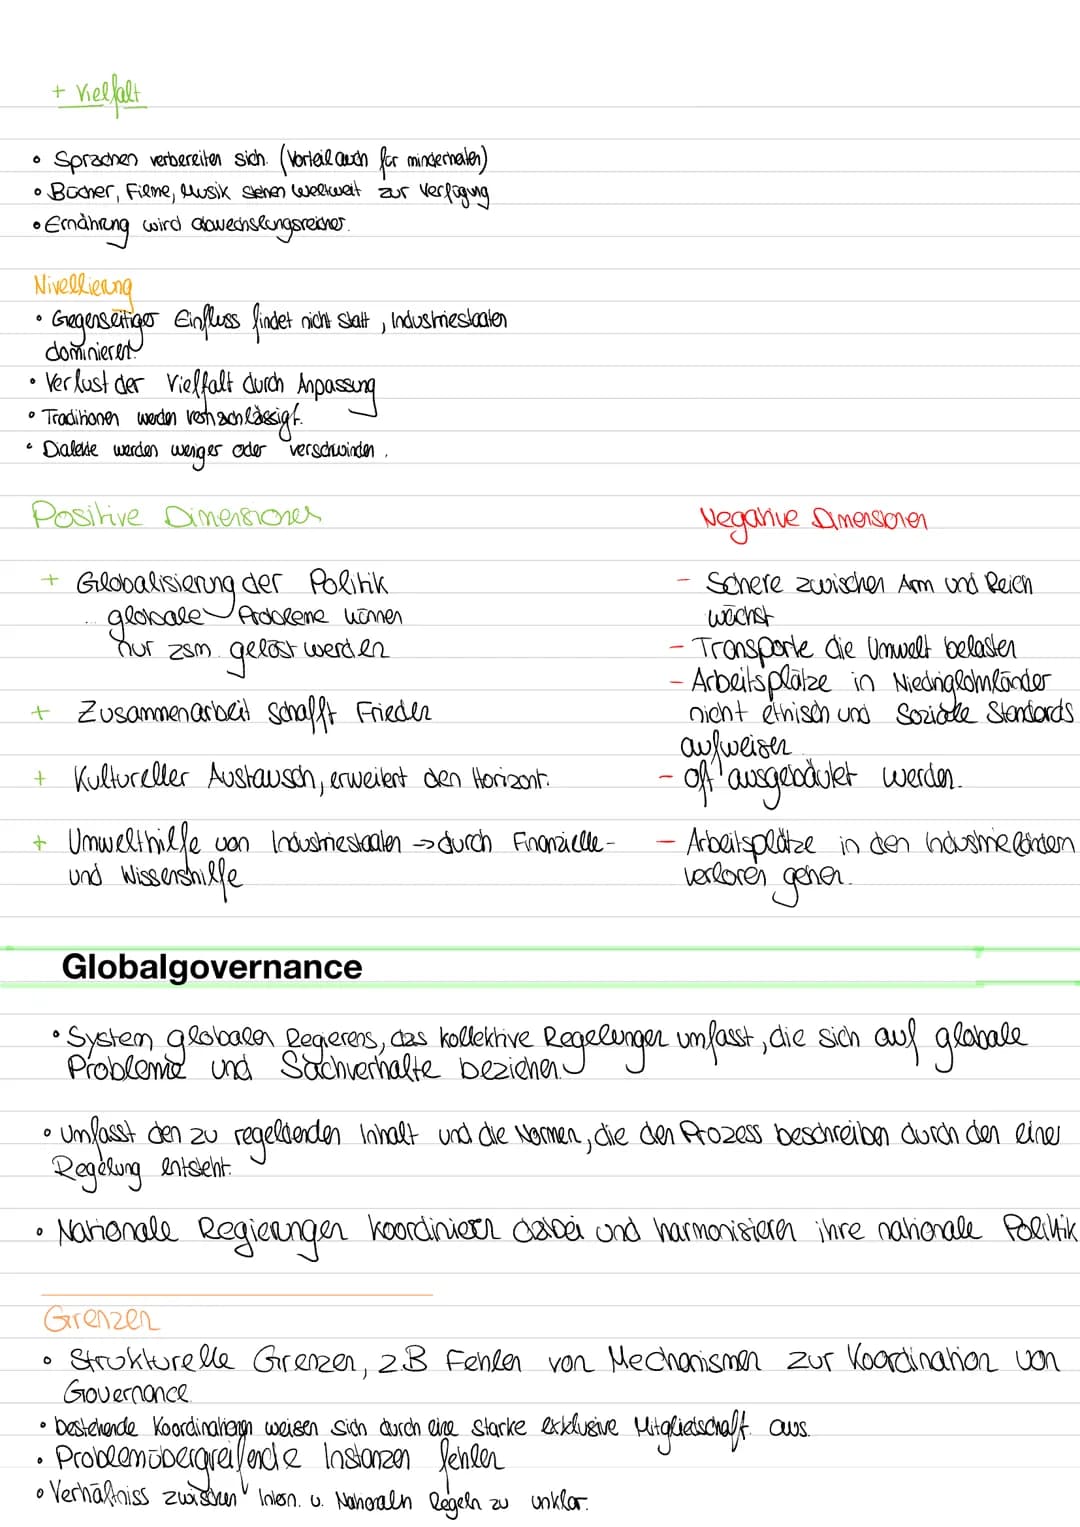 + Vielfalt
• Sprachen verbereiten sich. (Vorteil auch für minderheiten)
• Bücher, Filme, Musik stehen weltweit zur Verfügung
• Ernährung wird abwechslungsreicher.
Nivellierung
• Gegenseitiger Einfluss findet nicht statt, Industriestaaten
dominieren.
• Verlust der Vielfalt durch Anpassung
• Traditionen werden vernachlässigt.
• Dialekte werden weniger oder verschwinden.
Positive Dimensionen
+ Globalisierung der Politik
globale Probleme können
nur zsm. gelöst werden
+ Zusammenarbeit schafft Frieden
+ Kultureller Austausch, erweitert den Horizont.
+ Umwelthilfe von Industriestaaten → durch Finanzielle-
und Wissenshilfe
Negative Dimensionen
- Schere zwischen Arm und Reich
wächst
- Transporte die Umwelt belasten
- Arbeitsplätze in Niedriglohnländer
nicht ethisch und Soziale Standards
aufweisen
- oft ausgebäutet werden.
- Arbeitsplätze in den Industrieländern
verloren gehen.
Globalgovernance
• System globalen Regierens, das kollektive Regelungen umfasst, die sich auf globale
Probleme und Sachverhalte beziehen.
• Umfasst den zu regeldenden Inhalt und die Normen, die den Prozess beschreiben durch den eine
Regelung entsteht.
• Nationale Regierungen koordinieren dabei und harmonisieren ihre nationale Politik
Grenzen
• Strukturelle Grenzen, z.B Fehlen von Mechanismen zur Koordination von
Governance.
• bestehende Koordinationen weisen sich durch eine starke exklusive Mitgliedschaft aus.
• Problemübergreifende Instanzen fehlen
• Verhältniss zwischen Intern. u. Nationaln Regeln zu unklar.